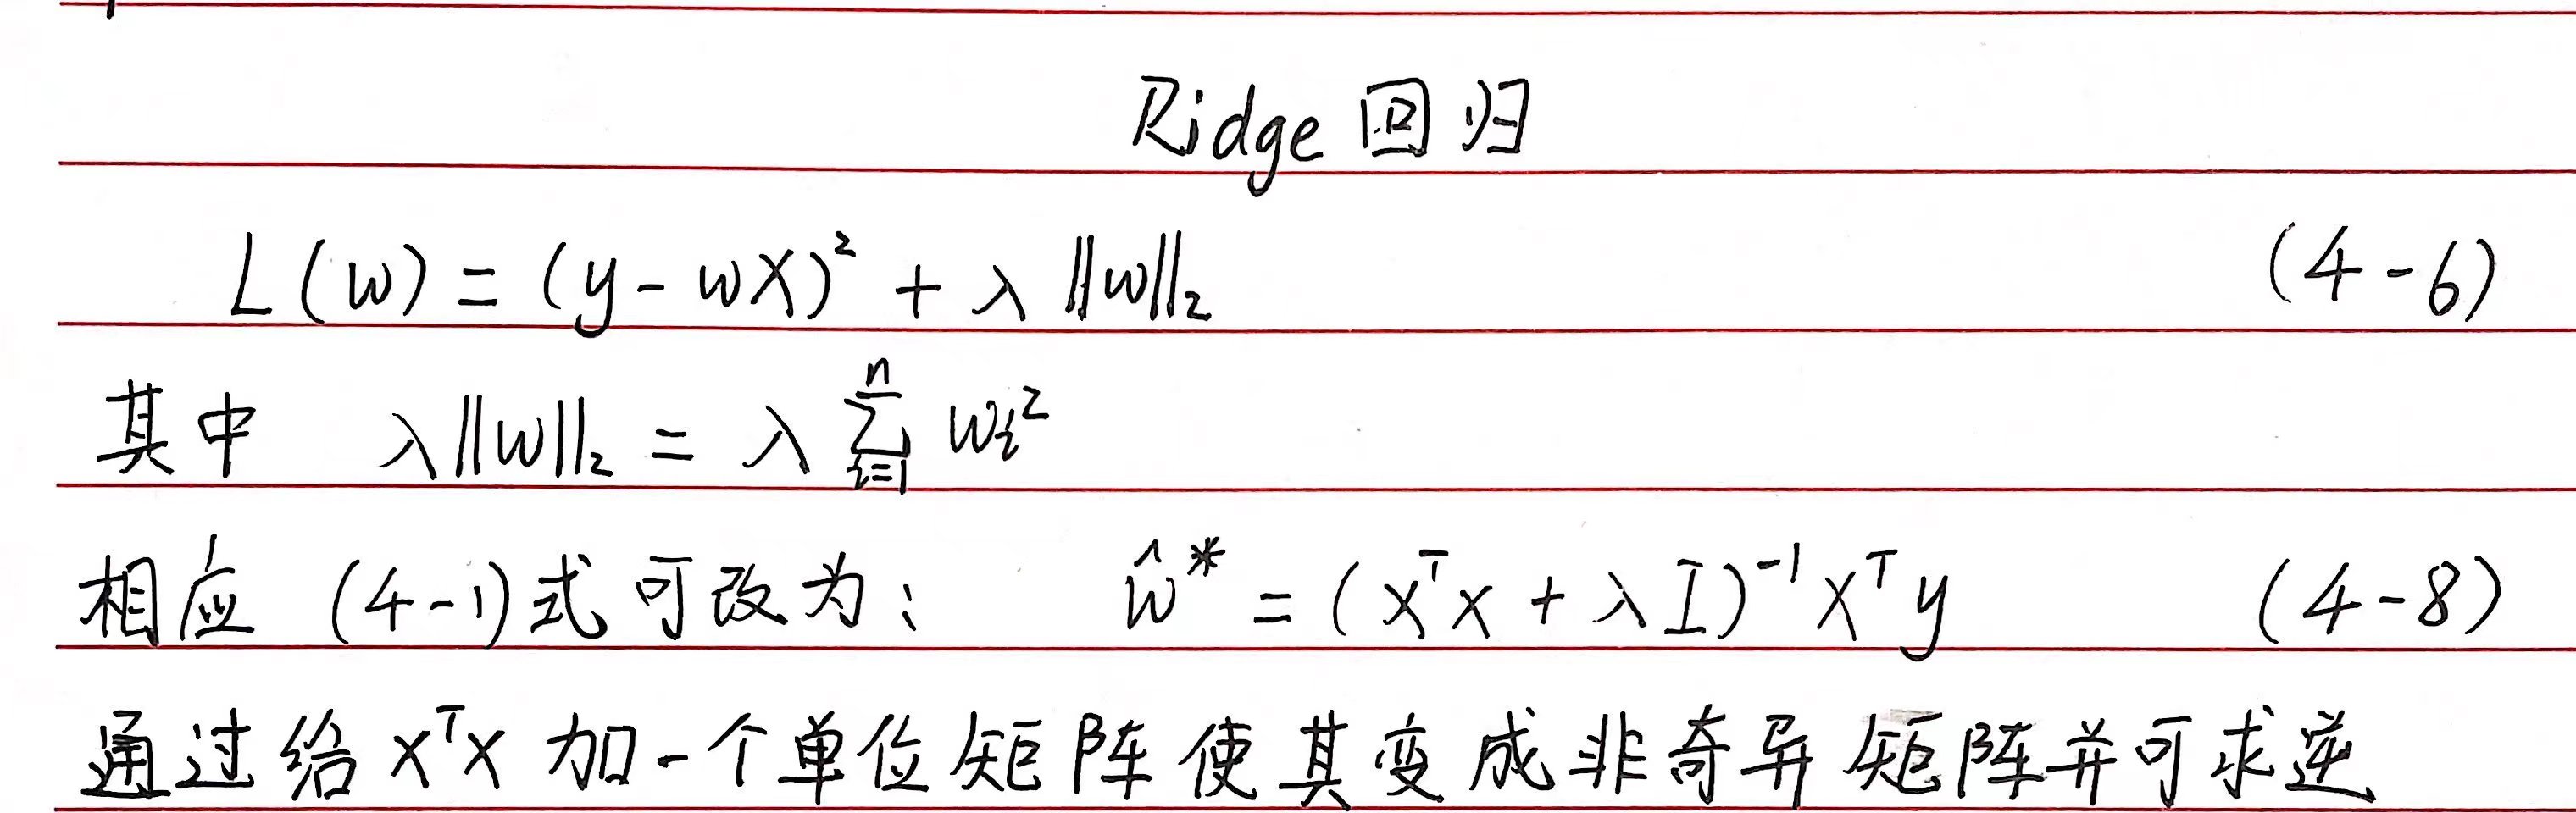 Ridge回归
L(w) = (y - wX)² + λ‖w‖₂ (4-6)
其中 λ‖w‖₂ = λ ∑ᵢ₌₁ⁿ wᵢ²
相应 (4-1)式可改为: ŵ* = (XᵀX + λI)⁻¹Xᵀy (4-8)
通过给XᵀX加一个单位矩阵使其变成非奇异矩阵并可求逆